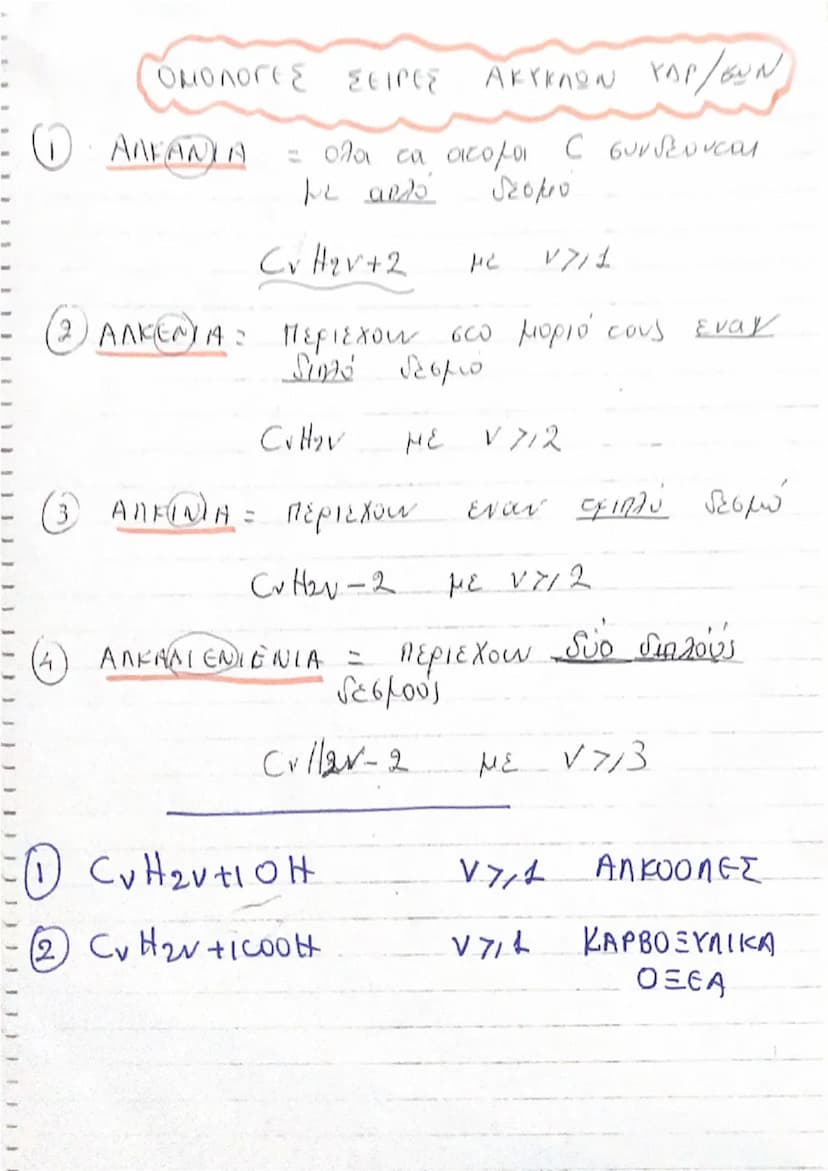 ΟΜΟΛΟΓΕΣ ΣΕΙΡΕΣ ΑΚΥΚΛΩΝ ΥΔΡ/ΘΩΝ
① ΑΛΚΑΝΙΑ = ολα τα ατομοι C συνδεονται
με απλό δεσμό
CνH2ν+2 με ν≥1
② ΑΛΚΕΝΙΑ = περιεχουν στο μοριό τους εναν
διπλό δεσμό
CνH2ν με ν≥2
③ ΑΛΚΙΝΙΑ = περιεχουν εναν τριπλό δεσμό
CνH2ν-2 με ν≥2
④ ΑΛΚΑΔΙΕΝΙΕΝΙΑ = περιεχουν δύο διπλούς
δεσμούς
CνH2ν-2 με ν≥3
① CνH2ν+1OH ν≥1 ΑΛΚΟΟΛΕΣ
② CνH2ν+1COOH ν≥1 ΚΑΡΒΟΞΥΛΙΚΑ
ΟΞΕΑ